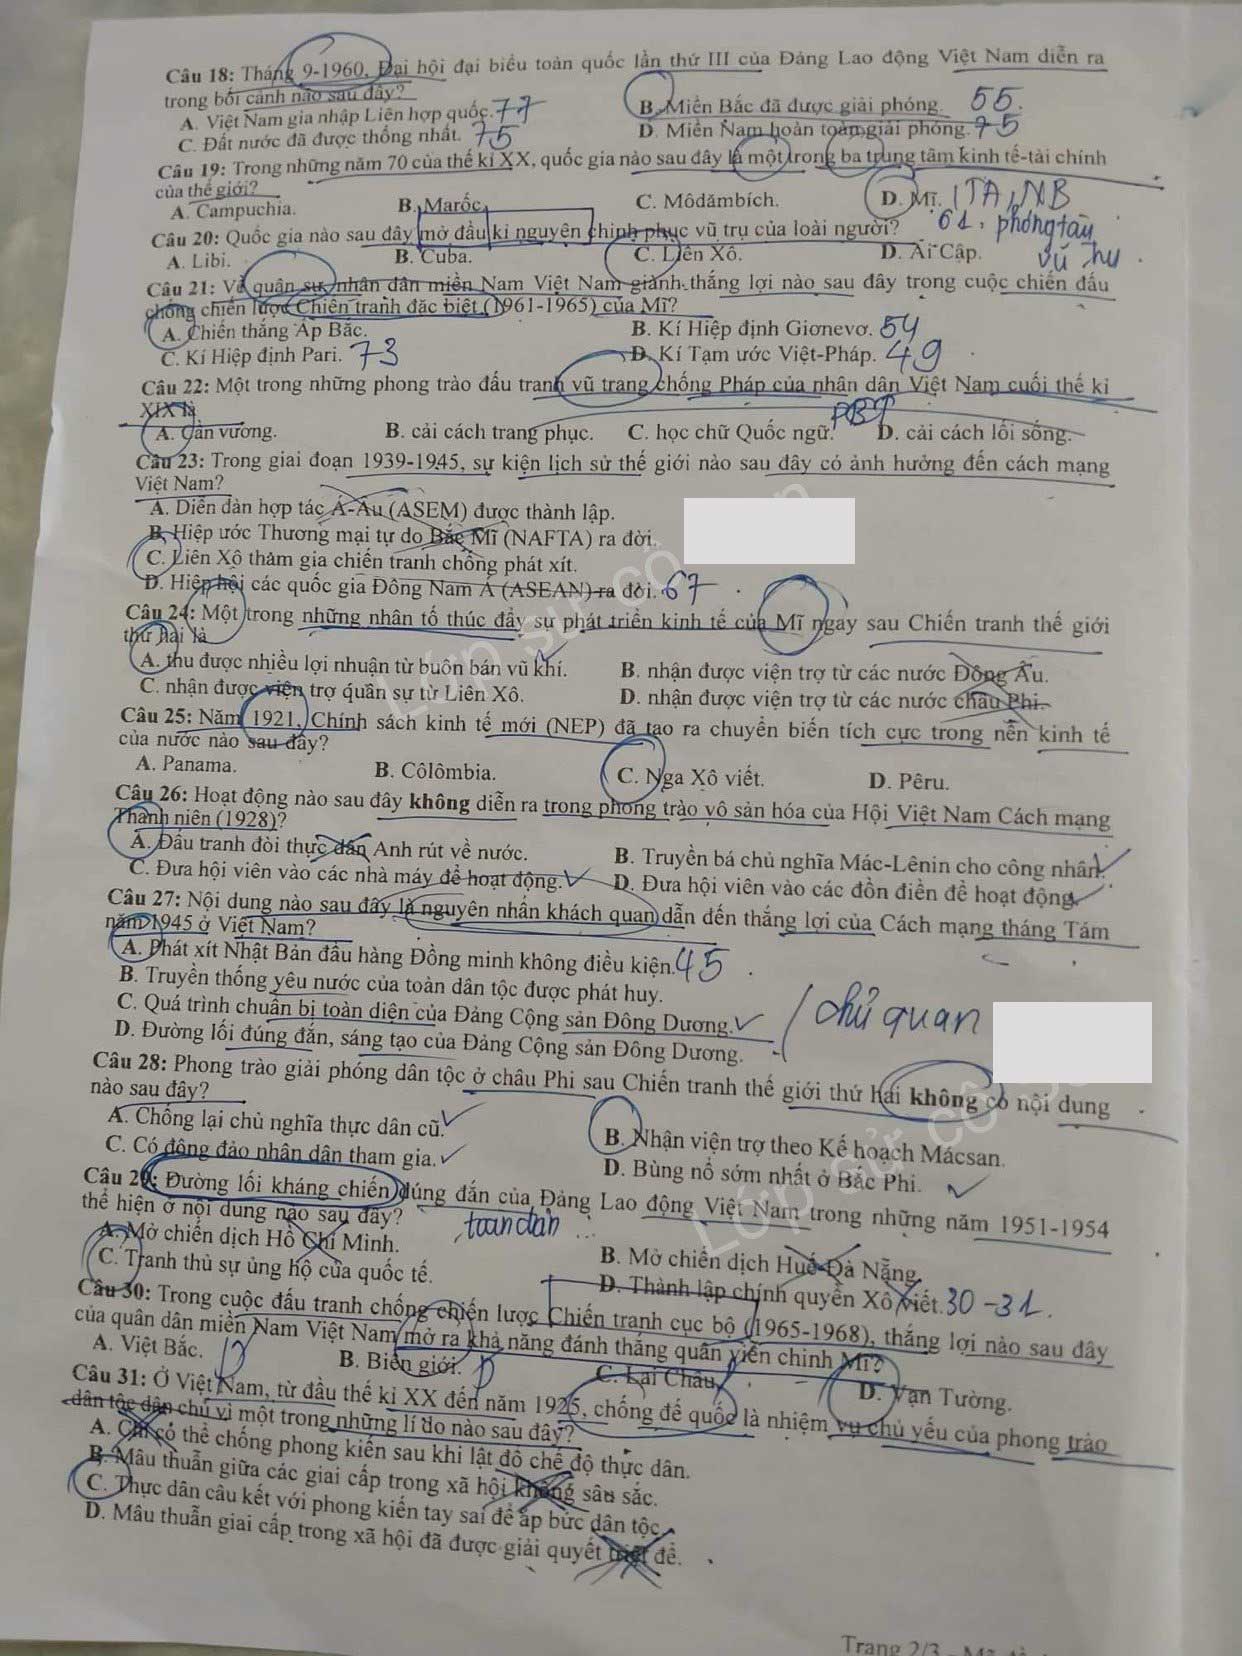 Câu 18: Tháng 9-1960, Đại hội đại biểu toàn quốc lần thứ III của Đảng Lao động Việt Nam diễn ra
trong bối cảnh nào sau đây?
A. Việt Nam gia nhập Liên hợp quốc. 77 B. Miền Bắc đã được giải phóng. 55.
C. Đất nước đã được thống nhất. 75 D. Miền Nam hoàn toàn giải phóng. 75
Câu 19: Trong những năm 70 của thế kỉ XX, quốc gia nào sau đây là một trong ba trung tâm kinh tế-tài chính
của thế giới?
A. Campuchia. B. Marốc. C. Môdămbích. D. Mĩ. , TÂ, NB
Câu 20: Quốc gia nào sau đây mở đầu kỉ nguyên chinh phục vũ trụ của loài người? 61, phóng tàu
A. Libi. B. Cuba. C. Liên Xô. D. Ai Cập. vũ trụ
Câu 21: Về quân sự, nhân dân miền Nam Việt Nam giành thắng lợi nào sau đây trong cuộc chiến đấu
chống chiến lược Chiến tranh đặc biệt (1961-1965) của Mĩ?
A. Chiến thắng Ấp Bắc. B. Kí Hiệp định Giơnevơ. 54
C. Kí Hiệp định Pari. 73 D. Kí Tạm ước Việt-Pháp. 49
Câu 22: Một trong những phong trào đấu tranh vũ trang chống Pháp của nhân dân Việt Nam cuối thế kỉ
XIX là
A. Cần vương. B. cải cách trang phục. C. học chữ Quốc ngữ. D. cải cách lối sống.
Câu 23: Trong giai đoạn 1939-1945, sự kiện lịch sử thế giới nào sau đây có ảnh hưởng đến cách mạng
Việt Nam?
A. Diễn đàn hợp tác Á-Âu (ASEM) được thành lập.
B. Hiệp ước Thương mại tự do Bắc Mĩ (NAFTA) ra đời.
C. Liên Xô tham gia chiến tranh chống phát xít.
D. Hiệp hội các quốc gia Đông Nam Á (ASEAN) ra đời. 67
Câu 24: Một trong những nhân tố thúc đẩy sự phát triển kinh tế của Mĩ ngay sau Chiến tranh thế giới
thứ hai là
A. thu được nhiều lợi nhuận từ buôn bán vũ khí. B. nhận được viện trợ từ các nước Đông Âu.
C. nhận được viện trợ quân sự từ Liên Xô. D. nhận được viện trợ từ các nước châu Phi.
Câu 25: Năm 1921, Chính sách kinh tế mới (NEP) đã tạo ra chuyển biến tích cực trong nền kinh tế
của nước nào sau đây?
A. Panama. B. Côlômbia. C. Nga Xô viết. D. Pêru.
Câu 26: Hoạt động nào sau đây không diễn ra trong phong trào vô sản hóa của Hội Việt Nam Cách mạng
Thanh niên (1928)?
A. Đấu tranh đòi thực dân Anh rút về nước. B. Truyền bá chủ nghĩa Mác-Lênin cho công nhân.
C. Đưa hội viên vào các nhà máy để hoạt động. D. Đưa hội viên vào các đồn điền để hoạt động.
Câu 27: Nội dung nào sau đây là nguyên nhân khách quan dẫn đến thắng lợi của Cách mạng tháng Tám
năm 1945 ở Việt Nam?
A. Phát xít Nhật Bản đầu hàng Đồng minh không điều kiện. 45
B. Truyền thống yêu nước của toàn dân tộc được phát huy.
C. Quá trình chuẩn bị toàn diện của Đảng Cộng sản Đông Dương. chủ quan
D. Đường lối đúng đắn, sáng tạo của Đảng Cộng sản Đông Dương.
Câu 28: Phong trào giải phóng dân tộc ở châu Phi sau Chiến tranh thế giới thứ hai không có nội dung
nào sau đây?
A. Chống lại chủ nghĩa thực dân cũ. B. Nhận viện trợ theo Kế hoạch Mácsan.
C. Có đông đảo nhân dân tham gia. D. Bùng nổ sớm nhất ở Bắc Phi.
Câu 29: Đường lối kháng chiến đúng đắn của Đảng Lao động Việt Nam trong những năm 1951-1954
thể hiện ở nội dung nào sau đây? toàn dân
A. Mở chiến dịch Hồ Chí Minh. B. Mở chiến dịch Huế-Đà Nẵng.
C. Tranh thủ sự ủng hộ của quốc tế. D. Thành lập chính quyền Xô viết. 30-31.
Câu 30: Trong cuộc đấu tranh chống chiến lược Chiến tranh cục bộ (1965-1968), thắng lợi nào sau đây
của quân dân miền Nam Việt Nam mở ra khả năng đánh thắng quân viễn chinh Mĩ?
A. Việt Bắc. P B. Biên giới. P C. Lai Châu. D. Vạn Tường.
Câu 31: Ở Việt Nam, từ đầu thế kỉ XX đến năm 1925, chống đế quốc là nhiệm vụ chủ yếu của phong trào
dân tộc dân chủ vì một trong những lí do nào sau đây?
A. Chỉ có thể chống phong kiến sau khi lật đổ chế độ thực dân.
B. Mâu thuẫn giữa các giai cấp trong xã hội không sâu sắc.
C. Thực dân câu kết với phong kiến tay sai để áp bức dân tộc.
D. Mâu thuẫn giai cấp trong xã hội đã được giải quyết triệt để.
Lớp sử cô
Lớp sử cô
Trang 2/3 - Mã đề